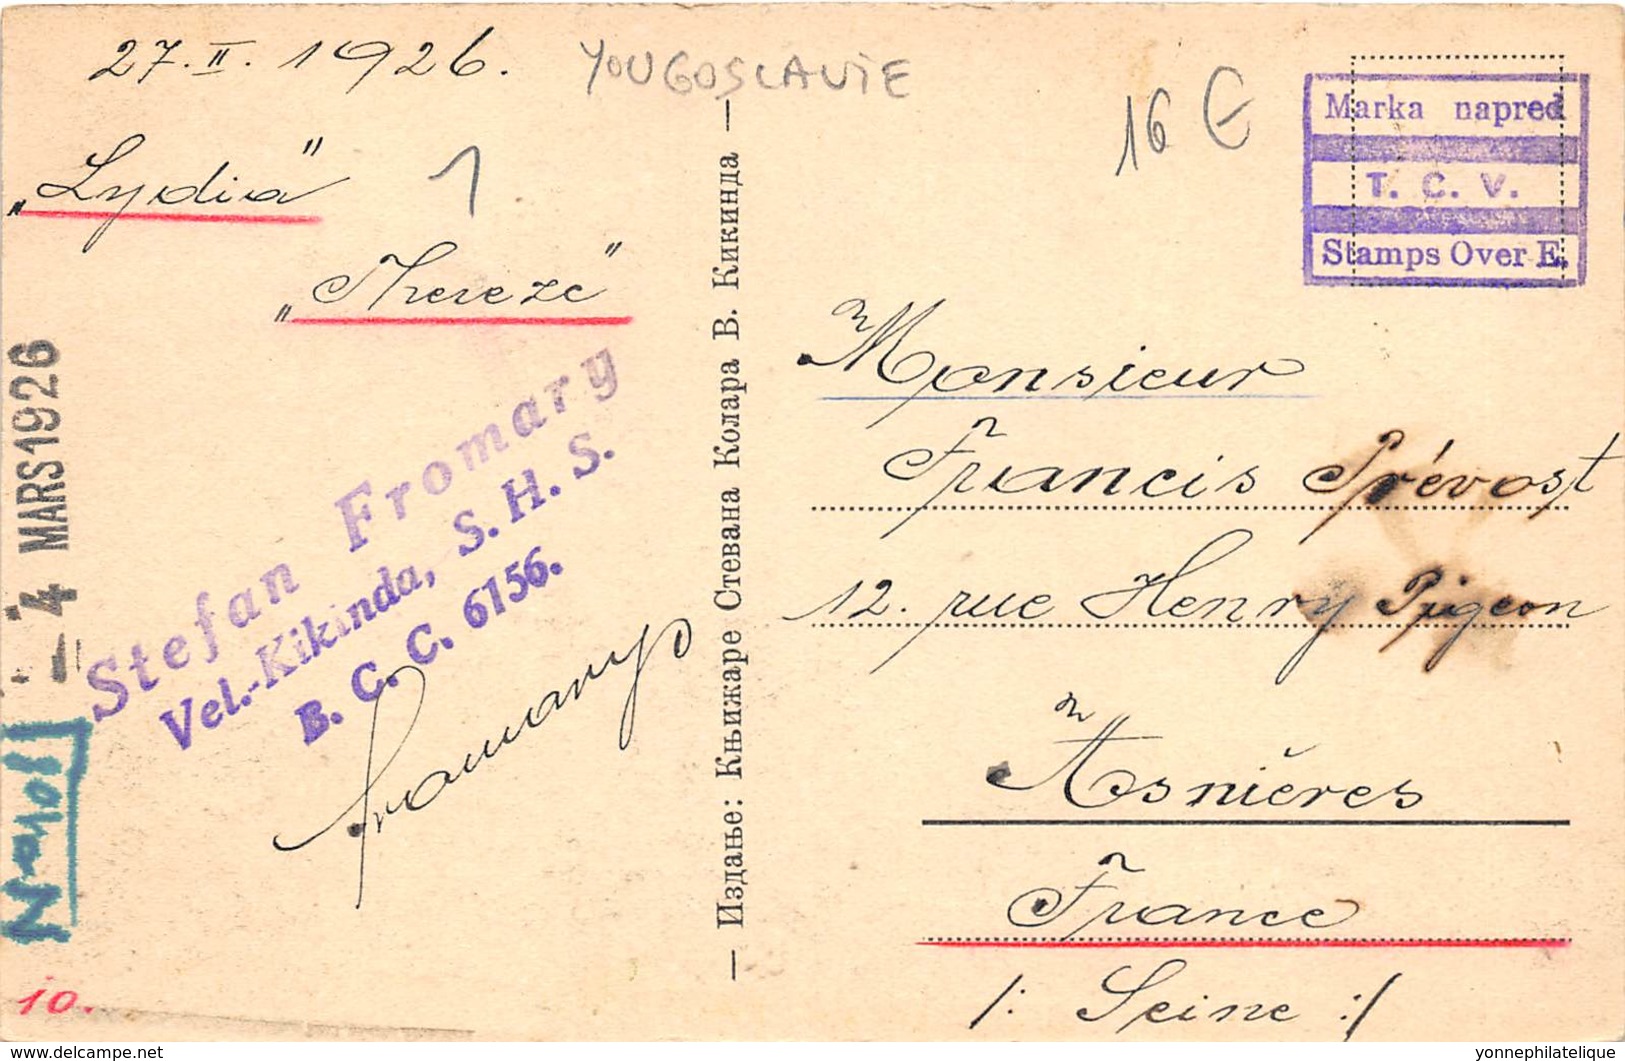 27. II. 1926.
YOUGOSLAVIE
16 €
„Lydia"
1
„Thereze"
Marka napred
T. C. V.
Stamps Over E.
Stefan Fromary
Vel.-Kikinda, S. H. S.
B. C. C. 6156.
Fromary
— 4 MARS 1926
10.
— Издање: Књижаре Стевана Колара В. Кикинда —
Monsieur
Francis Prévost
12. rue Henry Pigeon
Asnières
France
/: Seine :/
yonnephilatelique
www.delcampe.net